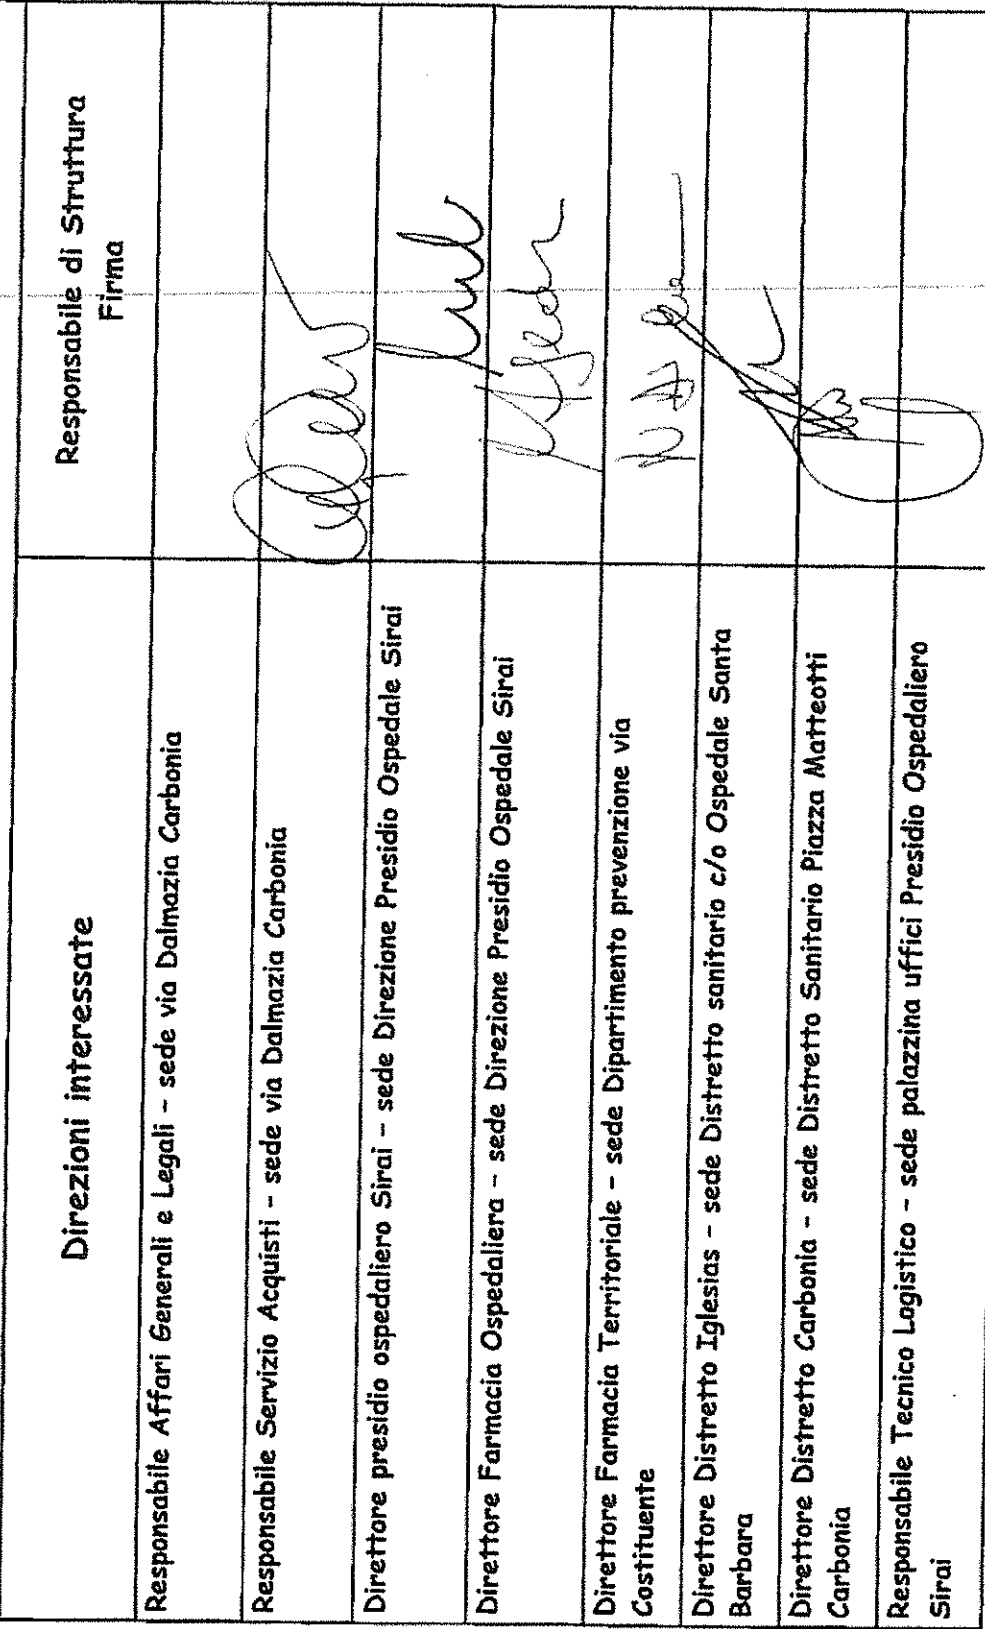 Direzioni interessate
Responsabile di Struttura
Firma
Responsabile Affari Generali e Legali - sede via Dalmazia Carbonia
Responsabile Servizio Acquisti - sede via Dalmazia Carbonia
Direttore presidio ospedaliero Sirai - sede Direzione Presidio Ospedale Sirai
Direttore Farmacia Ospedaliera - sede Direzione Presidio Ospedale Sirai
Direttore Farmacia Territoriale - sede Dipartimento prevenzione via
Costituente
Direttore Distretto Iglesias - sede Distretto sanitario c/o Ospedale Santa
Barbara
Direttore Distretto Carbonia - sede Distretto Sanitario Piazza Matteotti
Carbonia
Responsabile Tecnico Logistico - sede palazzina uffici Presidio Ospedaliero
Sirai